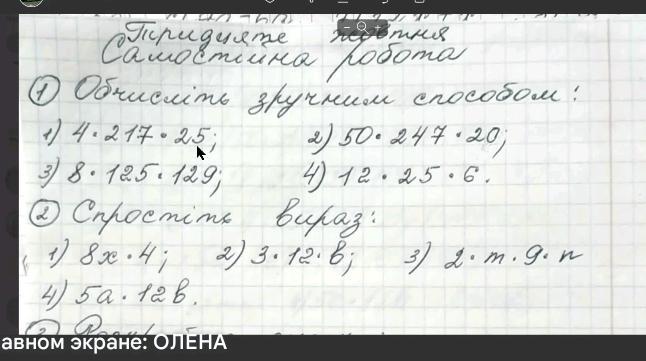 Тридцяте жовтня
Самостійна робота
① Обчисліть зручним способом:
1) 4·217·25; 2) 50·247·20;
3) 8·125·129; 4) 12·25·6.
② Спростіть вираз:
1) 8x·4; 2) 3·12·b; 3) 2·m·9·n
4) 5a·12b.
авном экране: ОЛЕНА